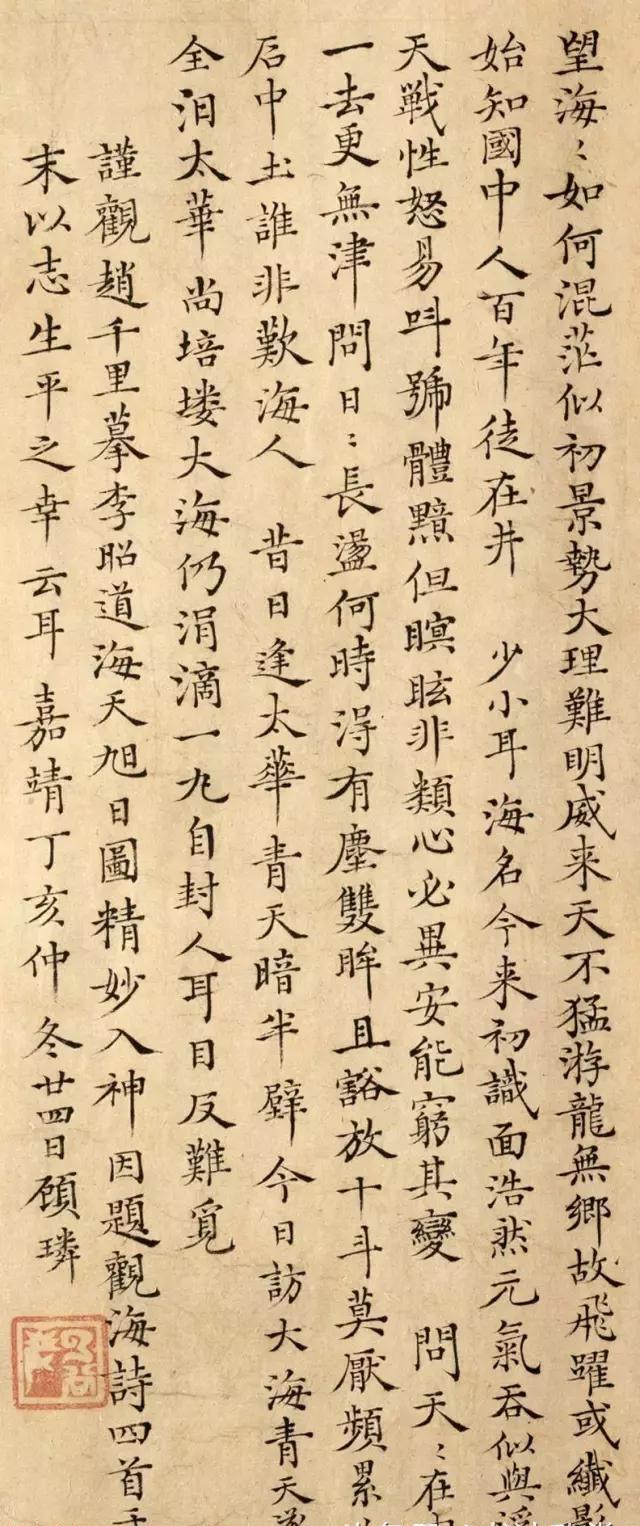 望海〻如何混茫似初景勢大理難明威来天不猛游龍無鄉故飛躍或纖影
始知國中人百年徒在井 少小耳海名今来初識面浩然元氣吞似與
天戰性怒易叫號體黯但瞑眩非類心必異安能窮其變 問天〻在
一去更無津問日〻長盪何時淂有塵雙眸且豁放十斗莫厭頻累
后中土誰非歎海人 昔日逢太華青天暗半壁今日訪大海青天
全汨太華尚培塿大海仍涓滴一丸自封人耳目反難覓
謹觀趙千里摹李昭道海天旭日圖精妙入神因題觀海詩四首于
末以志生平之幸云耳嘉靖丁亥仲冬廿四日顧璘